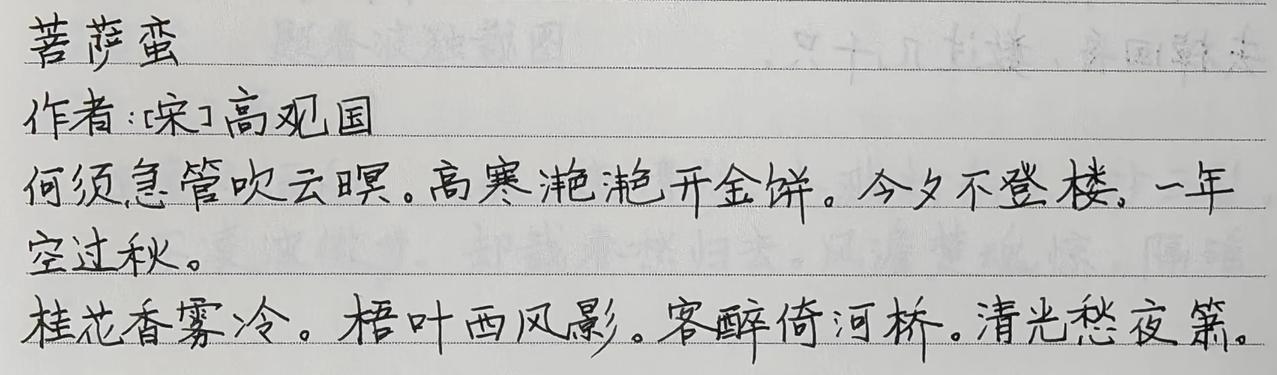 菩萨蛮
作者:[宋]高观国
何须急管吹云暝。高寒滟滟开金饼。今夕不登楼。一年
空过秋。
桂花香雾冷。梧叶西风影。客醉倚河桥。清光愁夜箫。